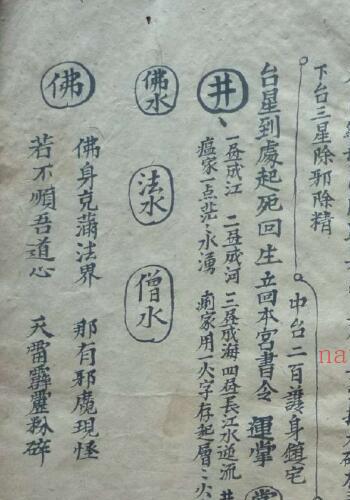 下台三星除邪除精
中台二百護身鎮宅
台星到處起死回生 立回本宮書令 運掌
井
一昼成江 二昼成河 三昼成海 四昼長江水逆流
瘟家一点茫茫永湧 痢家用一火字存起層層火
佛水 法水 僧水
佛
佛身充滿法界 那有邪魔現怪
若不順吾道心 天雷霹靂粉碎
na